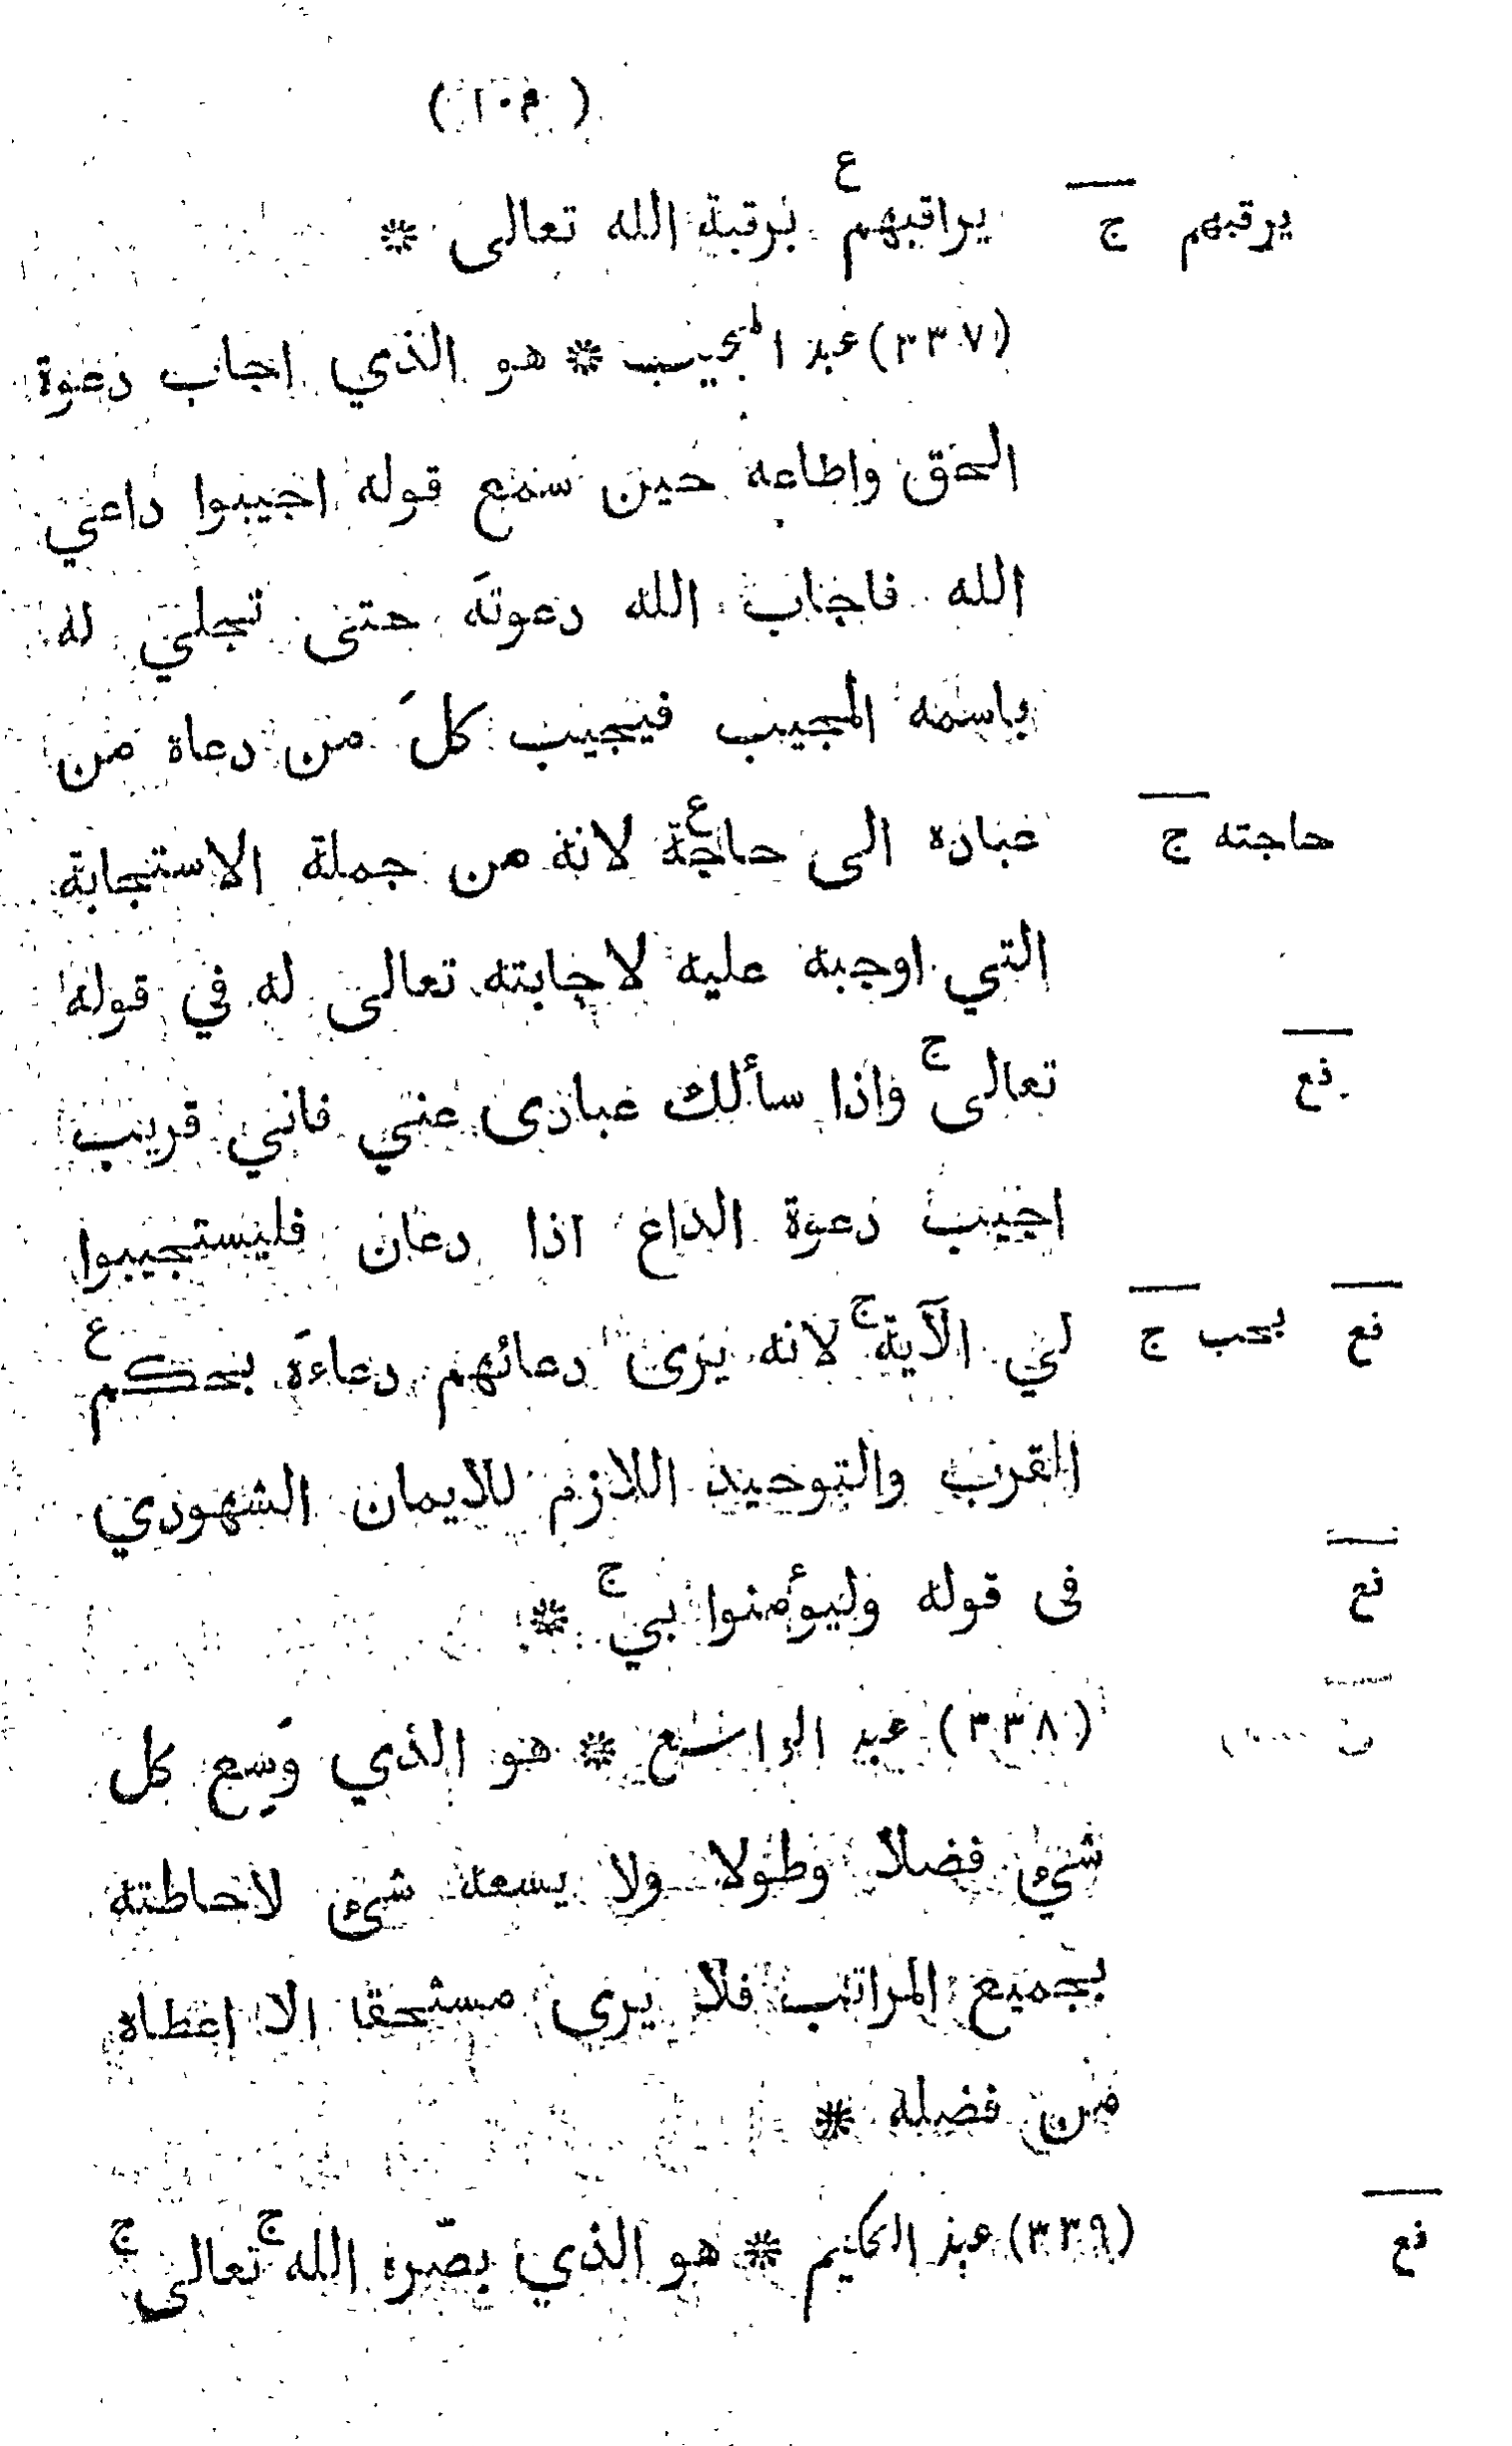 (١٠٣)
يراقبهم ع برقبة الله تعالى * يرقبهم ج
(٣٣٧) عبد المجيب * هو الذي اجاب دعوة
الحق واطاعه حين سمع قوله اجيبوا داعي
الله فاجاب الله دعوته حتى تجلي له
باسمه المجيب فيجيب كل من دعاه من
عباده الى حاجة ع لانه من جملة الاستجابة حاجته ج
التي اوجبه عليه لاجابته تعالى له في قوله
تعالى ج واذا سألك عبادى عني فاني قريب نع
اجيب دعوة الداع اذا دعان فليستجيبوا
لي الآية ج لانه يرى دعائهم دعاءه بحكم ع بحب ج نع
القرب والتوحيد اللازم للايمان الشهودي
فى قوله وليؤمنوا بي ج * نع
(٣٣٨) عبد الواسع * هو الذي وَسِع كل
شيء فضلا وطولا ولا يسعه شيء لاحاطته
بجميع المراتب فلا يرى مستحقا الا اعطاه
من فضله *
(٣٣٩) عبد الحكيم * هو الذي بصّره الله ج تعالى ج نع